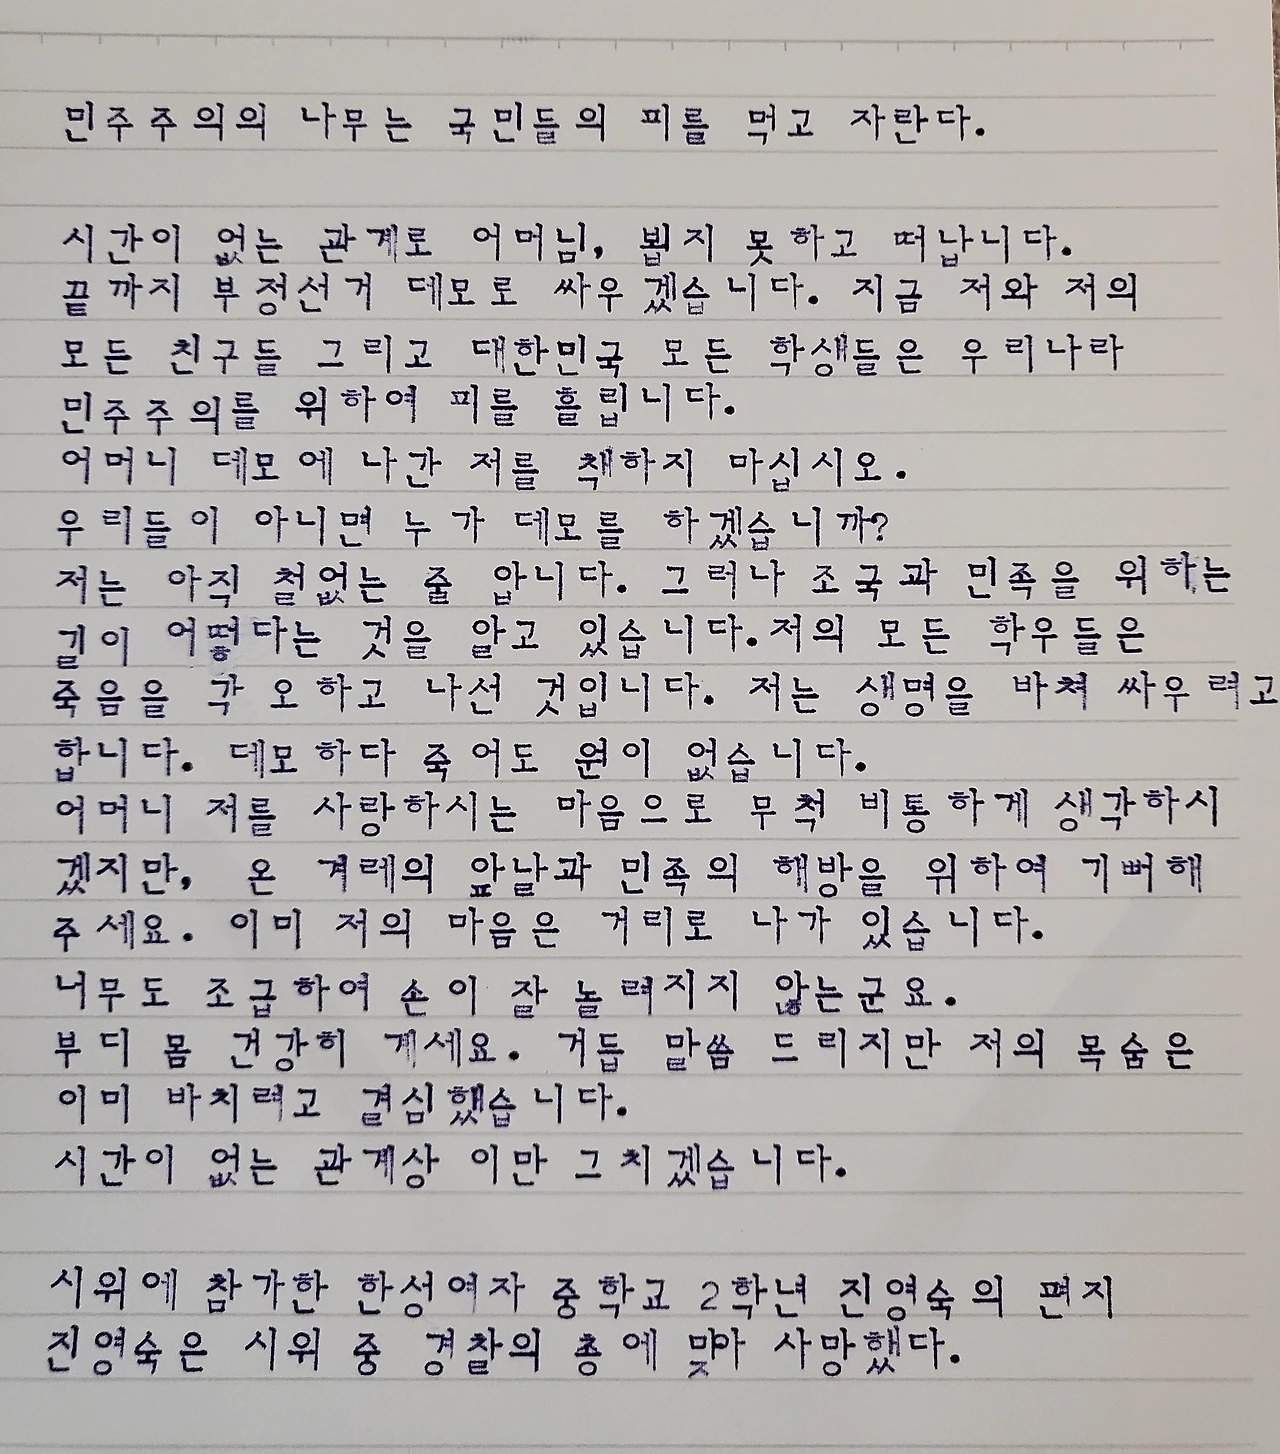 민주주의의 나무는 국민들의 피를 먹고 자란다.
시간이 없는 관계로 어머님, 뵙지 못하고 떠납니다.
끝까지 부정선거 데모로 싸우겠습니다. 지금 저와 저의
모든 친구들 그리고 대한민국 모든 학생들은 우리나라
민주주의를 위하여 피를 흘립니다.
어머니 데모에 나간 저를 책하지 마십시오.
우리들이 아니면 누가 데모를 하겠습니까?
저는 아직 철없는 줄 압니다. 그러나 조국과 민족을 위하는
길이 어떻다는 것을 알고 있습니다. 저의 모든 학우들은
죽음을 각오하고 나선 것입니다. 저는 생명을 바쳐 싸우려고
합니다. 데모하다 죽어도 원이 없습니다.
어머니 저를 사랑하시는 마음으로 무척 비통하게 생각하시
겠지만, 온 겨레의 앞날과 민족의 해방을 위하여 기뻐해
주세요. 이미 저의 마음은 거리로 나가 있습니다.
너무도 조급하여 손이 잘 놀려지지 않는군요.
부디 몸 건강히 계세요. 거듭 말씀 드리지만 저의 목숨은
이미 바치려고 결심했습니다.
시간이 없는 관계상 이만 그치겠습니다.
시위에 참가한 한성여자 중학교 2학년 진영숙의 편지
진영숙은 시위 중 경찰의 총에 맞아 사망했다.